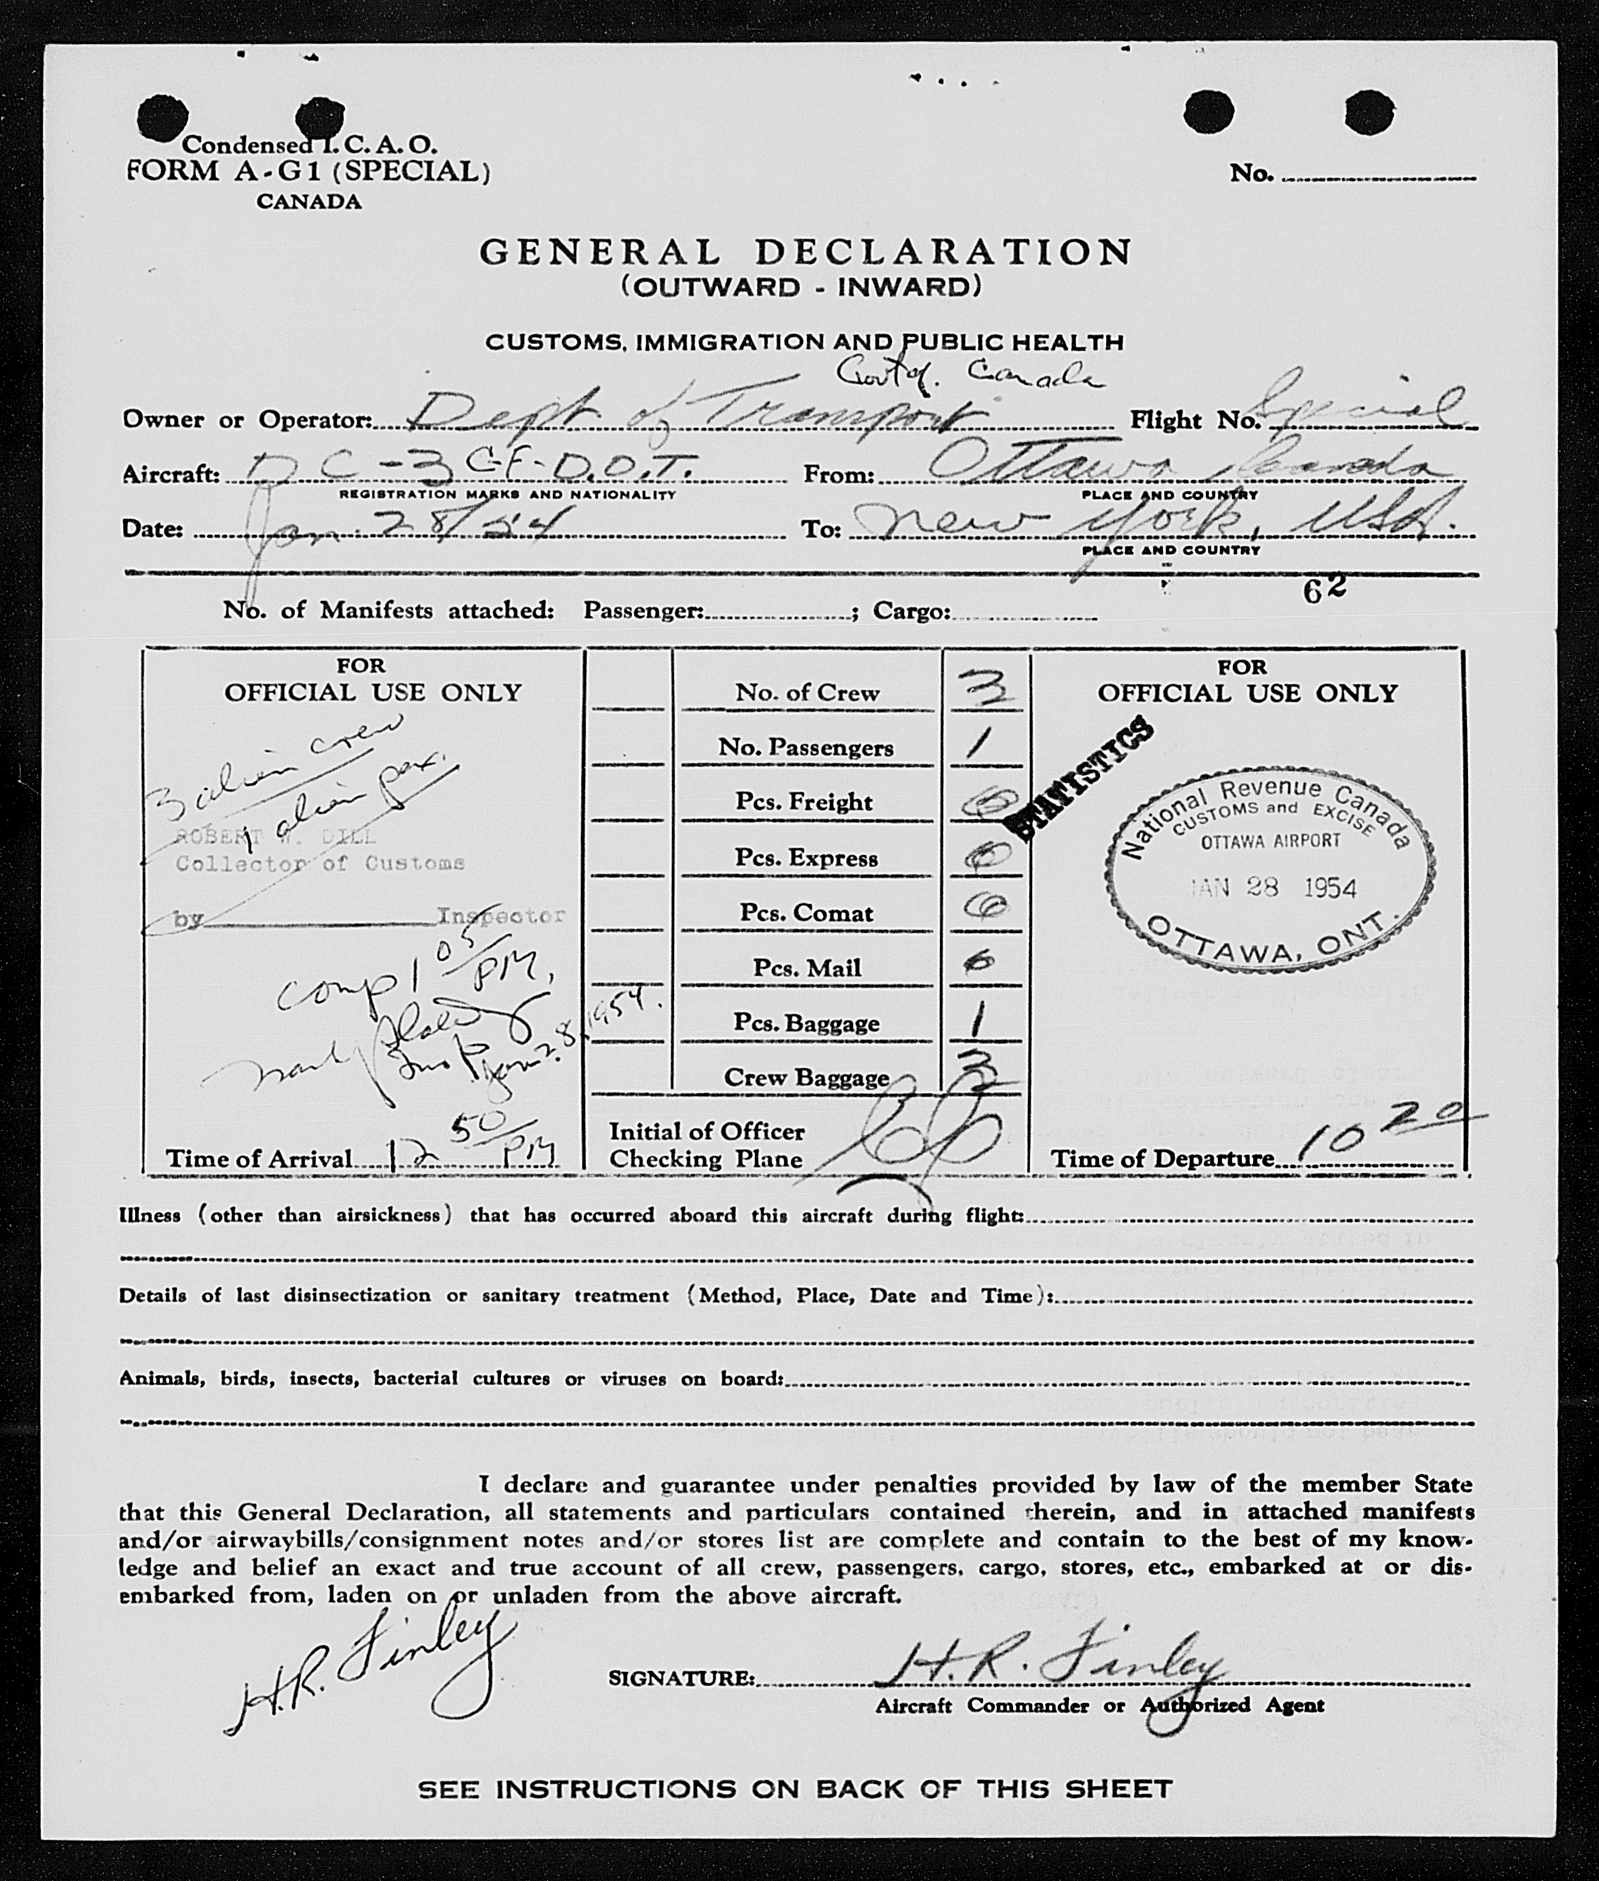 Condensed I. C. A. O.
FORM A-G1 (SPECIAL)
CANADA
No.
GENERAL DECLARATION
(OUTWARD - INWARD)
CUSTOMS, IMMIGRATION AND PUBLIC HEALTH
Govt of. Canada
Owner or Operator: Dept of Transport Flight No. Special
Aircraft: DC-3 CF-D.O.T. From: Ottawa, Canada
REGISTRATION MARKS AND NATIONALITY PLACE AND COUNTRY
Date: Jan. 28/54 To: New York, USA.
PLACE AND COUNTRY
62
No. of Manifests attached: Passenger: ; Cargo:
FOR
OFFICIAL USE ONLY
3 alien crew
1 alien pax.
ROBERT W. DILL
Collector of Customs
by Inspector
comp 1 05 PM,
Insp. Jan 28, 1954.
Time of Arrival 12 50 PM
No. of Crew 3
No. Passengers 1
Pcs. Freight
Pcs. Express
Pcs. Comat
Pcs. Mail
Pcs. Baggage 1
Crew Baggage 3
Initial of Officer
Checking Plane
FOR
OFFICIAL USE ONLY
STATISTICS
National Revenue Canada
CUSTOMS and EXCISE
OTTAWA AIRPORT
JAN 28 1954
OTTAWA, ONT.
Time of Departure 10 20
Illness (other than airsickness) that has occurred aboard this aircraft during flight:
Details of last disinsectization or sanitary treatment (Method, Place, Date and Time):
Animals, birds, insects, bacterial cultures or viruses on board:
I declare and guarantee under penalties provided by law of the member State
that this General Declaration, all statements and particulars contained therein, and in attached manifests
and/or airwaybills/consignment notes and/or stores list are complete and contain to the best of my know-
ledge and belief an exact and true account of all crew, passengers, cargo, stores, etc., embarked at or dis-
embarked from, laden on or unladen from the above aircraft.
H.R. Finley
SIGNATURE: H.R. Finley
Aircraft Commander or Authorized Agent
SEE INSTRUCTIONS ON BACK OF THIS SHEET